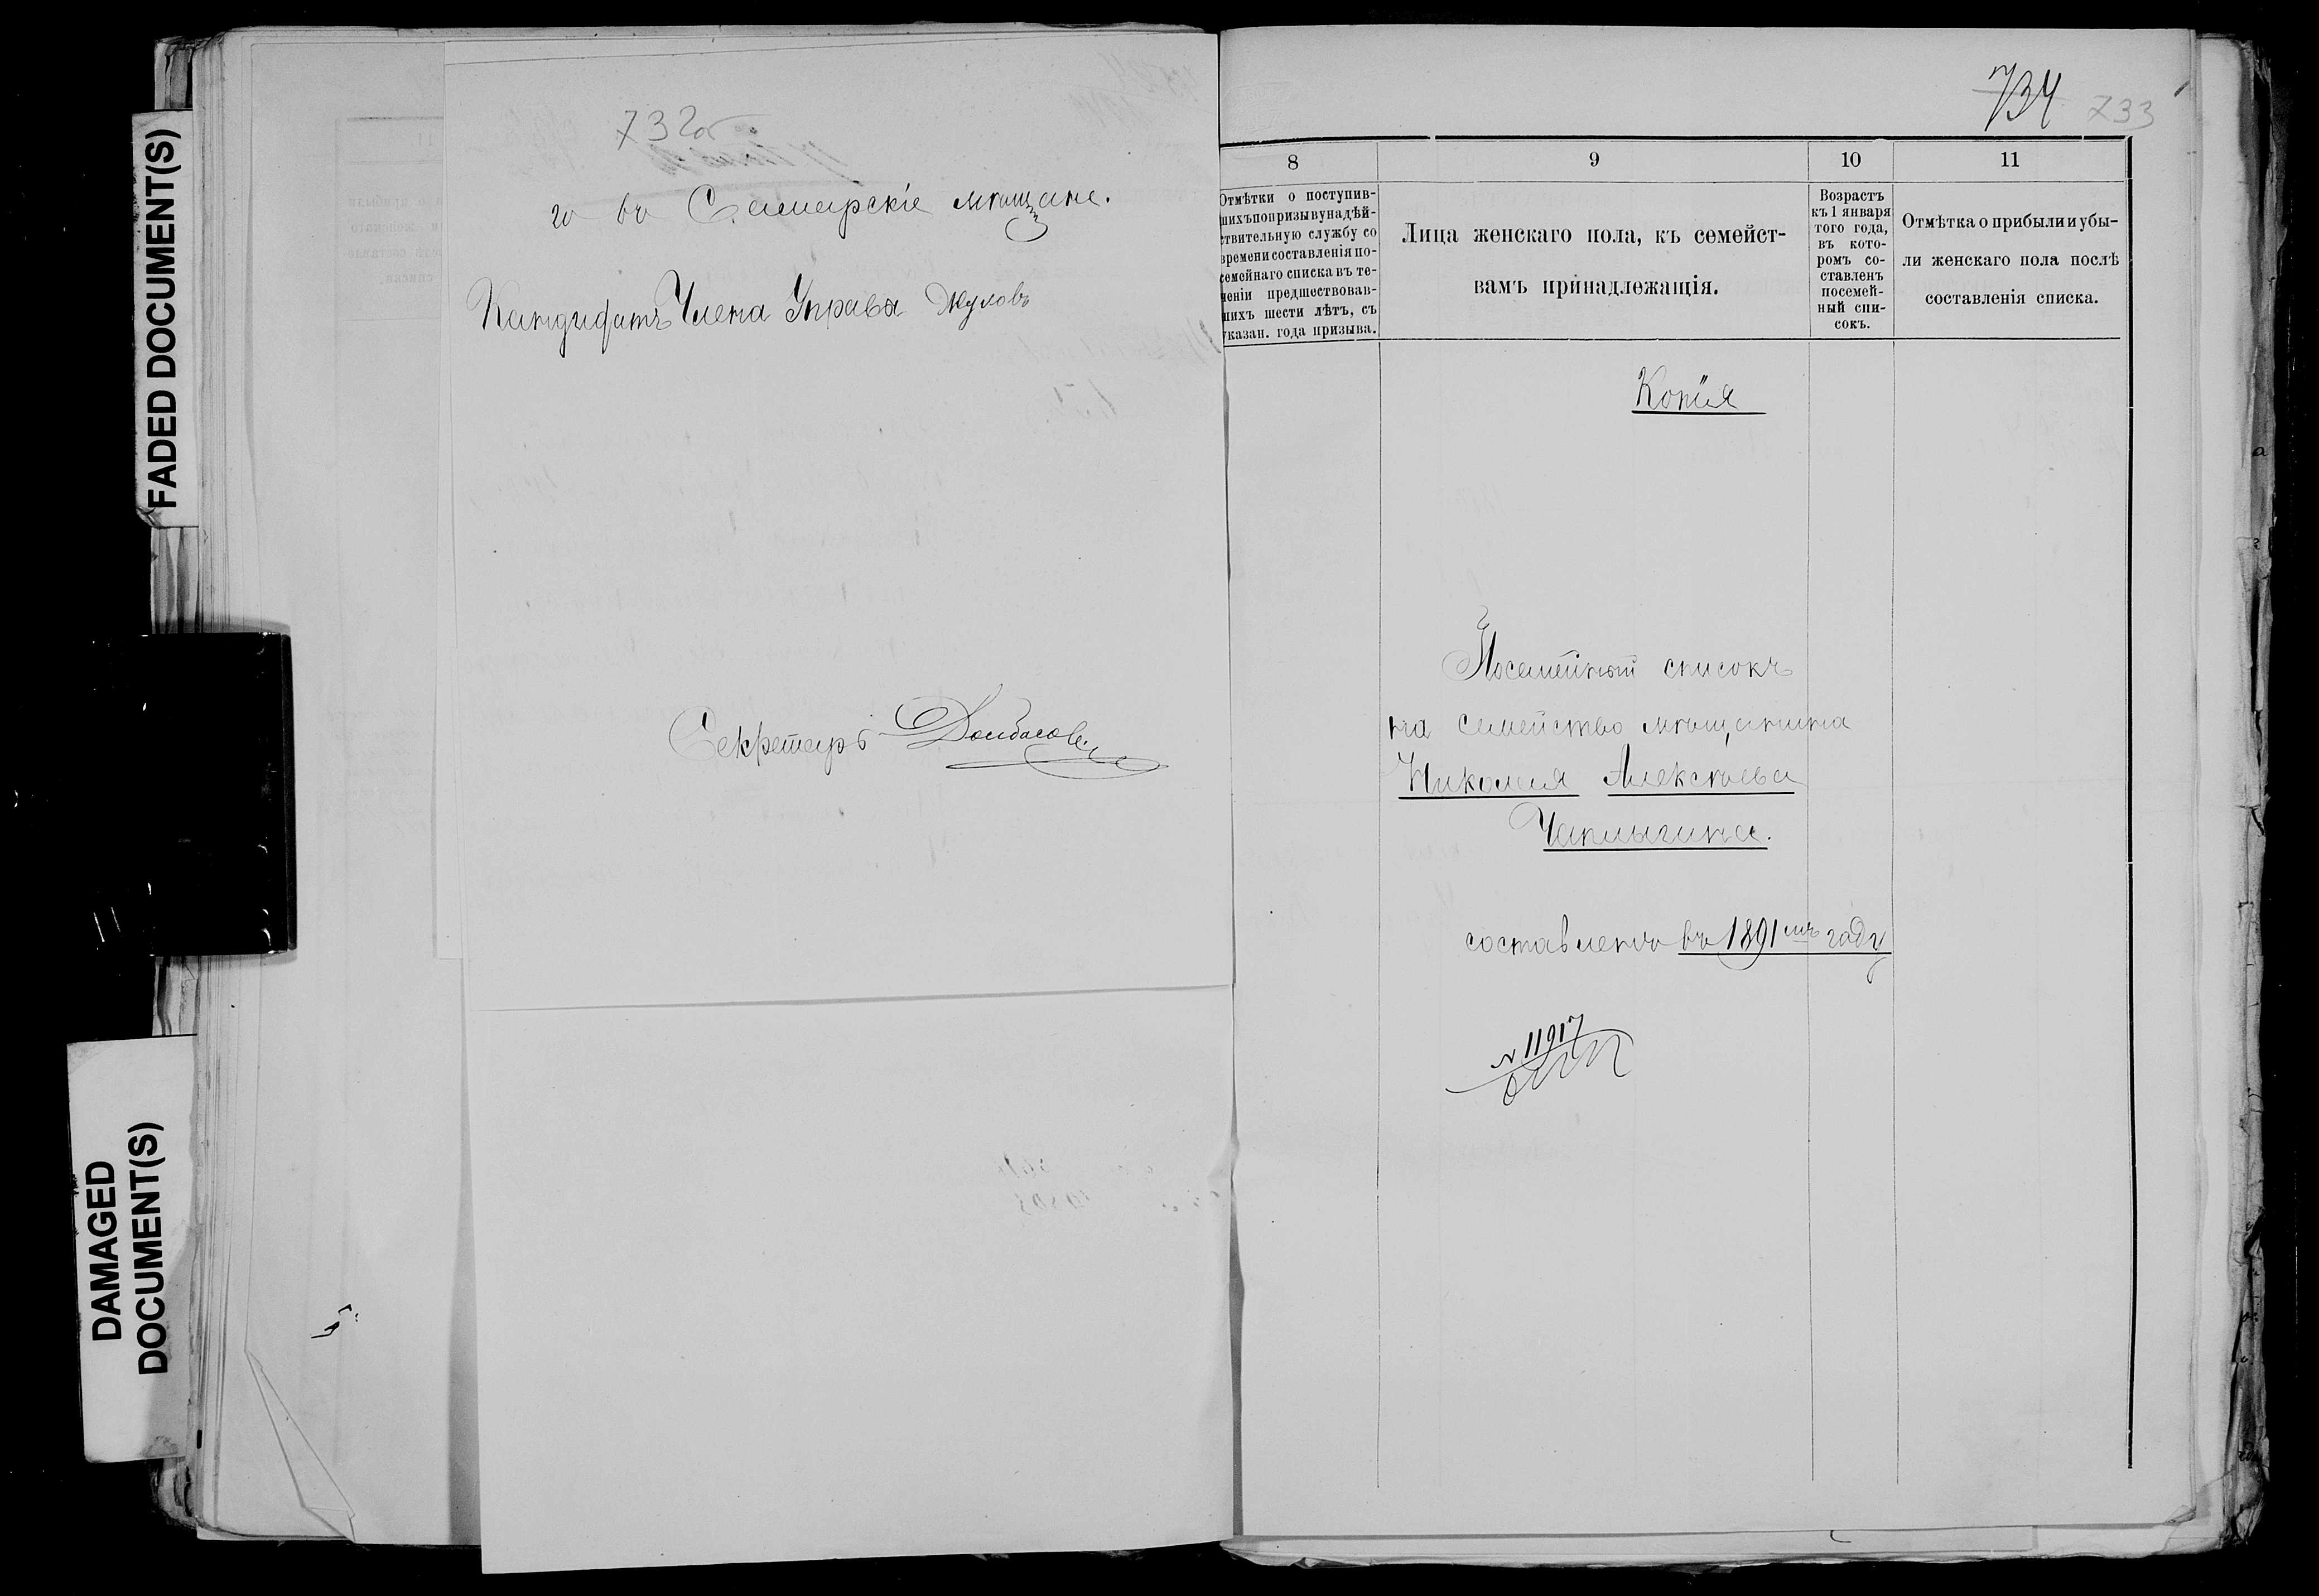 FADED DOCUMENT(S)
DAMAGED
DOCUMENT(S)
732об
го въ Самарскіе мѣщане.
Кандидатъ Члена Управы Жуловъ
Секретарь
734 733
8
Отмѣтки о поступив-
шихъ по призыву на дѣй-
ствительную службу со
времени составленія по-
семейнаго списка въ те-
ченіи предшествовав-
шихъ шести лѣтъ, съ
указан. года призыва.
9
Лица женскаго пола, къ семейст-
вамъ принадлежащія.
10
Возрастъ
къ 1 января
того года,
въ кото-
ромъ со-
ставленъ
посемей-
ный спи-
сокъ.
11
Отмѣтка о прибыли и убы-
ли женскаго пола послѣ
составленія списка.
Копія
Посемейный списокъ
на семейство мѣщанина
Николая Алексѣева
Чаплыгина.
составленъ въ 1891мъ году
№ 11917